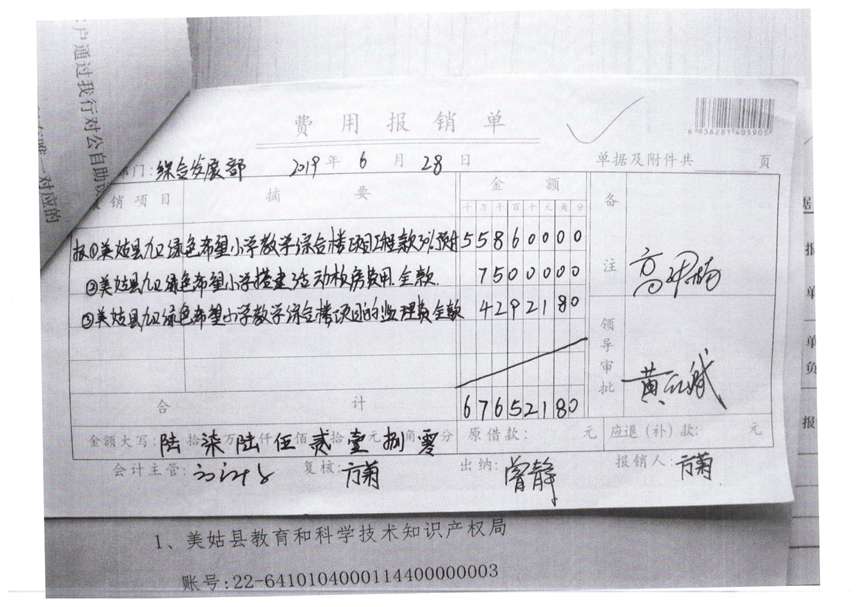 户通过我行对公自助
对应的
费用报销单
部门:综合发展部 2019年6月28日 单据及附件共 页
销项目 摘要 金额 备注
千百十万千百十元角分
报①美姑县九卫绿色希望小学教学综合楼项目工程款30%预付 55860000
②美姑县九卫绿色希望小学搭建活动板房费用全款. 7500000
③美姑县九卫绿色希望小学教学综合楼项目的监理费全款 4292180
领导审批
合计 67652180
金额大写:陆拾柒万陆仟伍佰贰拾壹元捌角零分 原借款: 元 应退(补)款: 元
会计主管: 复核:方菊 出纳:曾静 报销人:方菊
1、美姑县教育和科学技术知识产权局
账号:22-6410104000114400000003
据
报
单
单
负
报